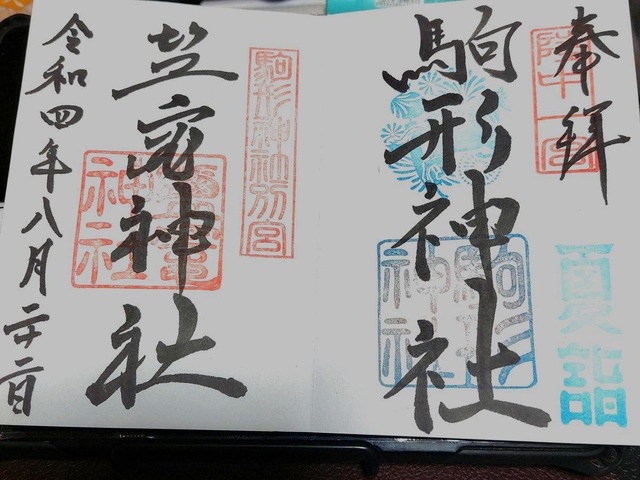 奉拝
陸中一宮
夏詣
駒形神社
駒形神社
駒形神社別宮
塩竈神社
神社
令和四年八月二十二日